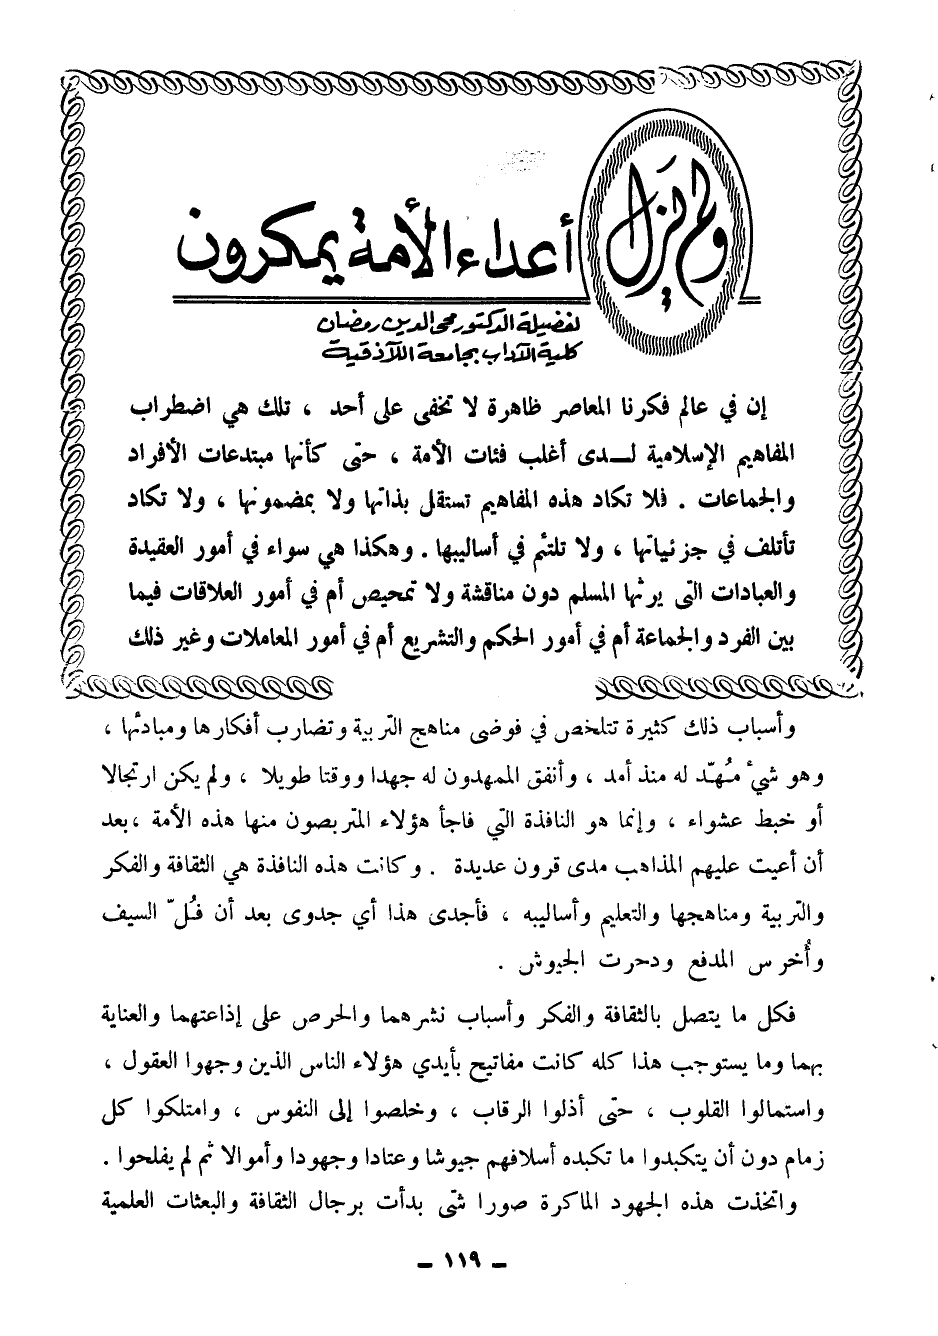 ولم يزل أعداء الأمة يمكرون
لفضيلة الدكتور محي الدين رمضان
كلية الآداب بجامعة اللاذقية
إن في عالم فكرنا المعاصر ظاهرة لا تخفى على أحد ، تلك هي اضطراب
المفاهيم الإسلامية لــدى أغلب فئات الأمة ، حتى كأنها مبتدعات الأفراد
والجماعات . فلا تكاد هذه المفاهيم تستقل بذاتها ولا بمضمونها ، ولا تكاد
تأتلف في جزئياتها ، ولا تلتئم في أساليبها . وهكذا هي سواء في أمور العقيدة
والعبادات التى يرثها المسلم دون مناقشة ولا تمحيص أم في أمور العلاقات فيما
بين الفرد والجماعة أم في أمور الحكم والتشريع أم في أمور المعاملات وغير ذلك
وأسباب ذلك كثيرة تتلخص في فوضى مناهج التربية وتضارب أفكارها ومبادئها ،
وهو شيء مُهّد له منذ أمد ، وأنفق الممهدون له جهدا ووقتا طويلا ، ولم يكن ارتجالا
أو خبط عشواء ، وإنما هو النافذة التي فاجأ هؤلاء المتربصون منها هذه الأمة ، بعد
أن أعيت عليهم المذاهب مدى قرون عديدة . وكانت هذه النافذة هي الثقافة والفكر
والتربية ومناهجها والتعليم وأساليبه ، فأجدى هذا أي جدوى بعد أن فُلّ السيف
وأُخرس المدفع ودحرت الجيوش .
فكل ما يتصل بالثقافة والفكر وأسباب نشرهما والحرص على إذاعتهما والعناية
بهما وما يستوجب هذا كله كانت مفاتيح بأيدي هؤلاء الناس الذين وجهوا العقول ،
واستمالوا القلوب ، حتى أذلوا الرقاب ، وخلصوا إلى النفوس ، وامتلكوا كل
زمام دون أن يتكبدوا ما تكبده أسلافهم جيوشا وعتادا وجهودا وأموالا ثم لم يفلحوا .
واتخذت هذه الجهود الماكرة صورا شتى بدأت برجال الثقافة والبعثات العلمية
– ١١٩ –